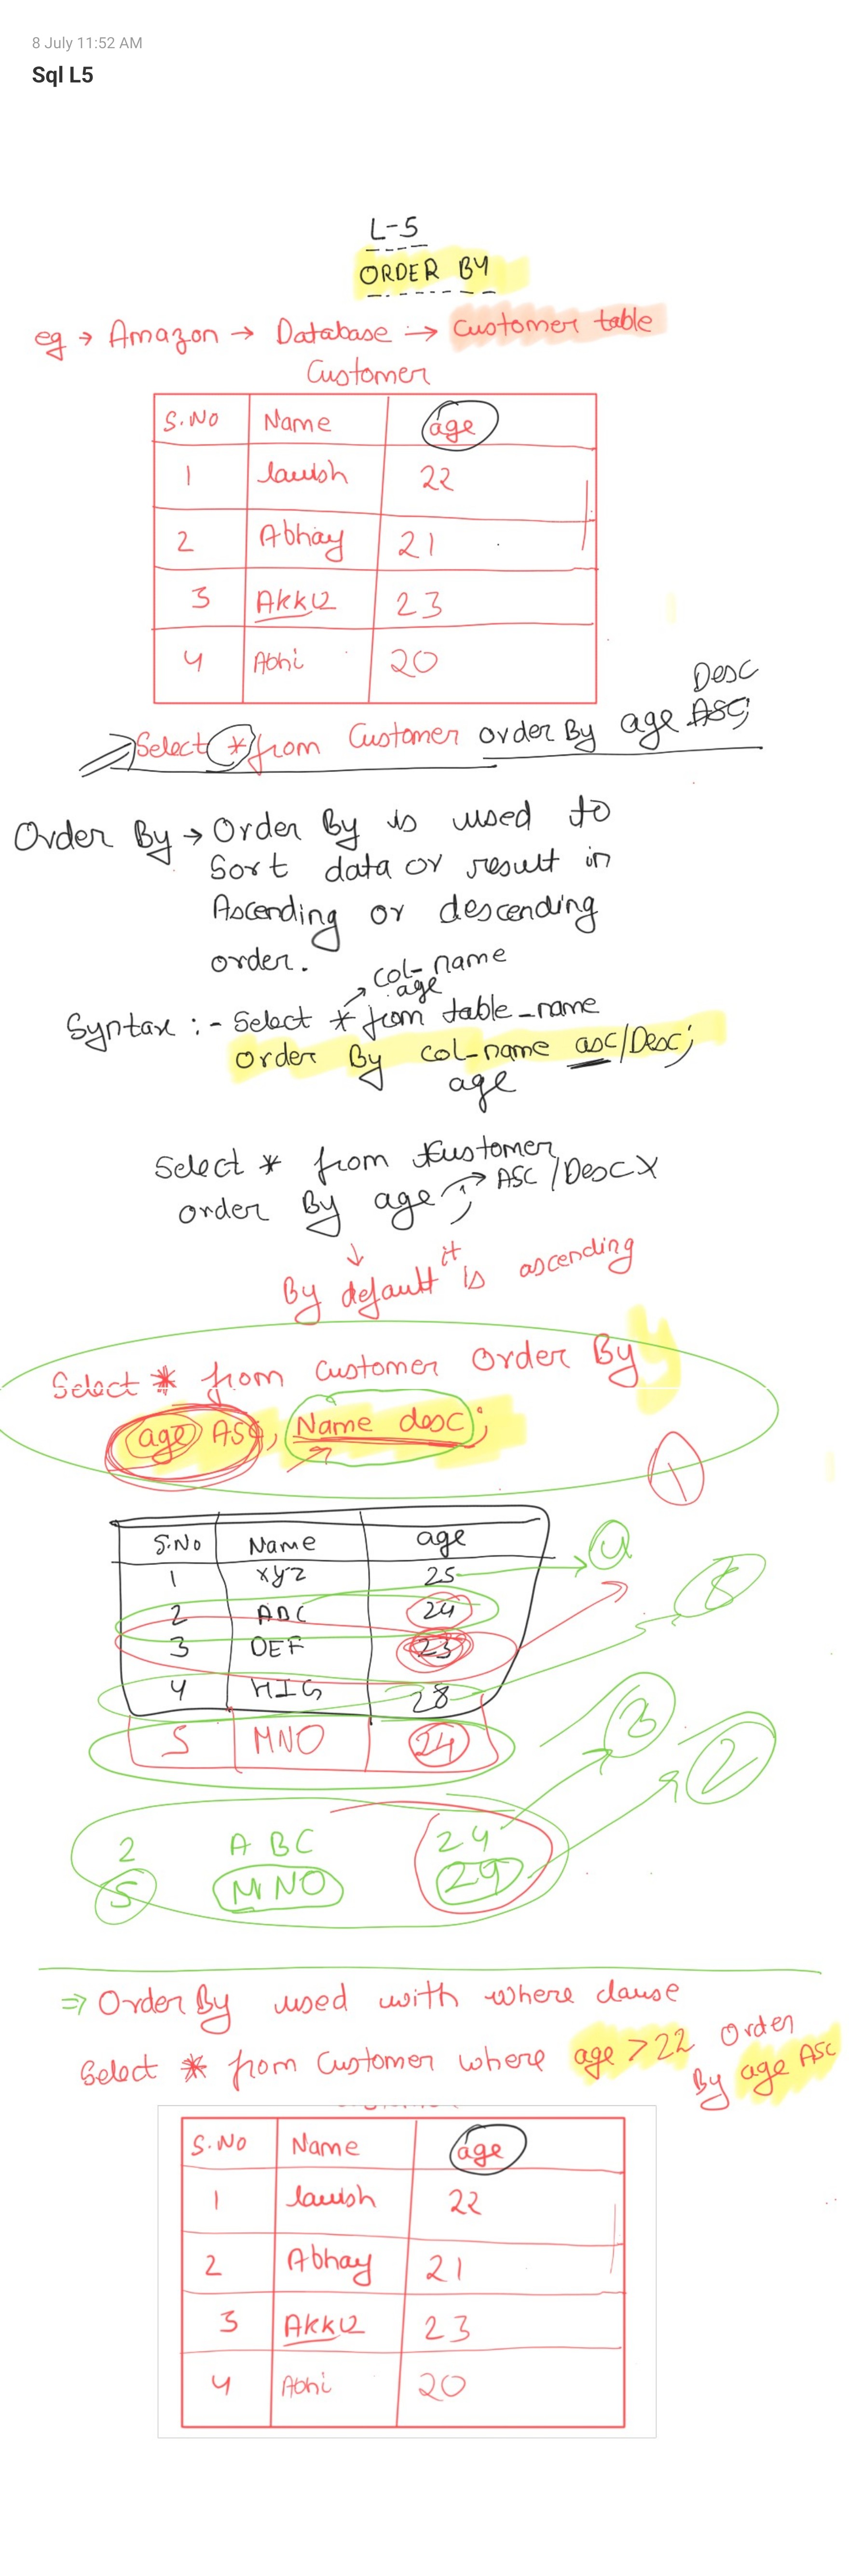 8 July 11:52 AM
Sql L5
L-5
ORDER BY
eg → Amazon → Database → Customer table
Customer
S.NO Name age
1 lavish 22
2 Abhay 21
3 Akku 23
4 Abhi 20
Desc
Select * from Customer order By age ASC;
Order By → Order By is used to
Sort data or result in
Ascending or descending
order.
col-name
age
Syntax :- Select * from table_name
order By col-name asc/Desc;
age
Select * from Customer
order By age ; → ASC / Desc X
↓ it
By default is ascending
Select * from Customer Order By
age ASC, Name desc;
1
S.No Name age
1 xyz 25 → 4
2 ABC 24
3 DEF 23
4 HIG 28
5 MNO 24
3
2
2 ABC 24
5 MNO 24
⇒ Order By used with where clause
Select * from Customer where age > 22 Order
By age ASC
S.NO Name age
1 lavish 22
2 Abhay 21
3 Akku 23
4 Abhi 20